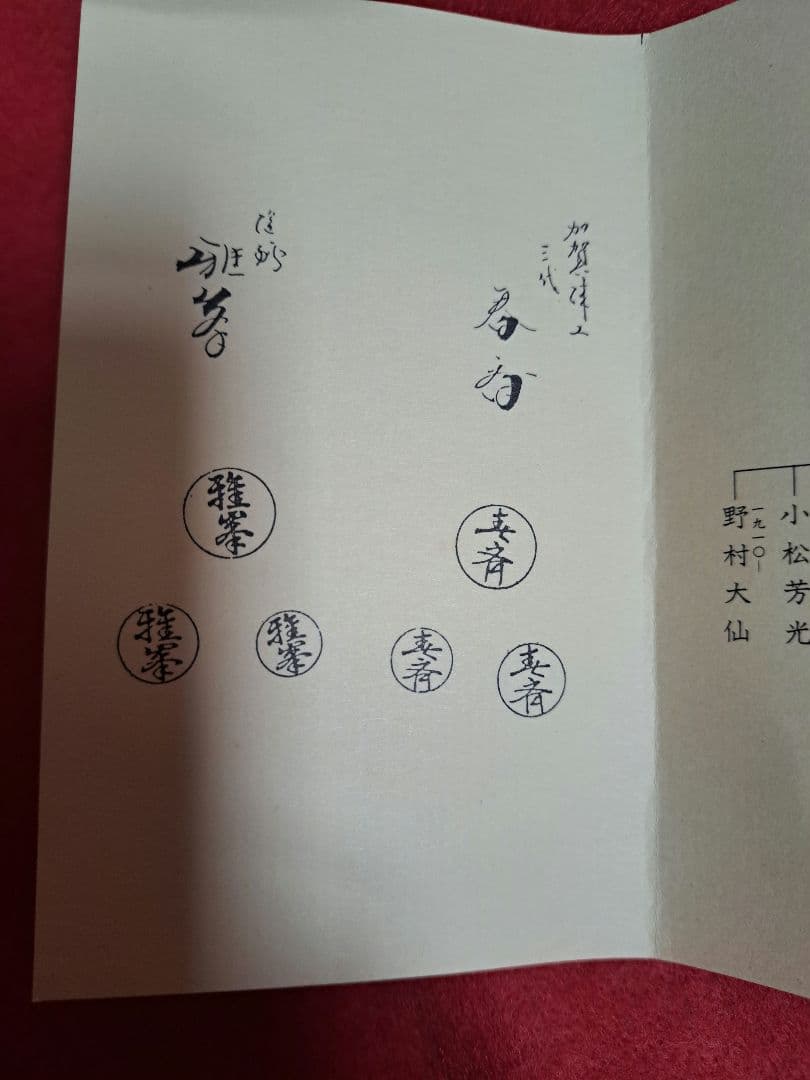 小松芳光
一九一〇—
野村大仙
加賀漆工
三代
春斎
雅峯
春斉
春斉
春斉
雅峯
雅峯
雅峯